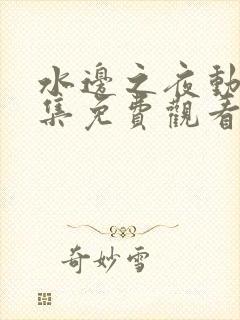 水邊之夜動
集免費觀看
奇妙雪